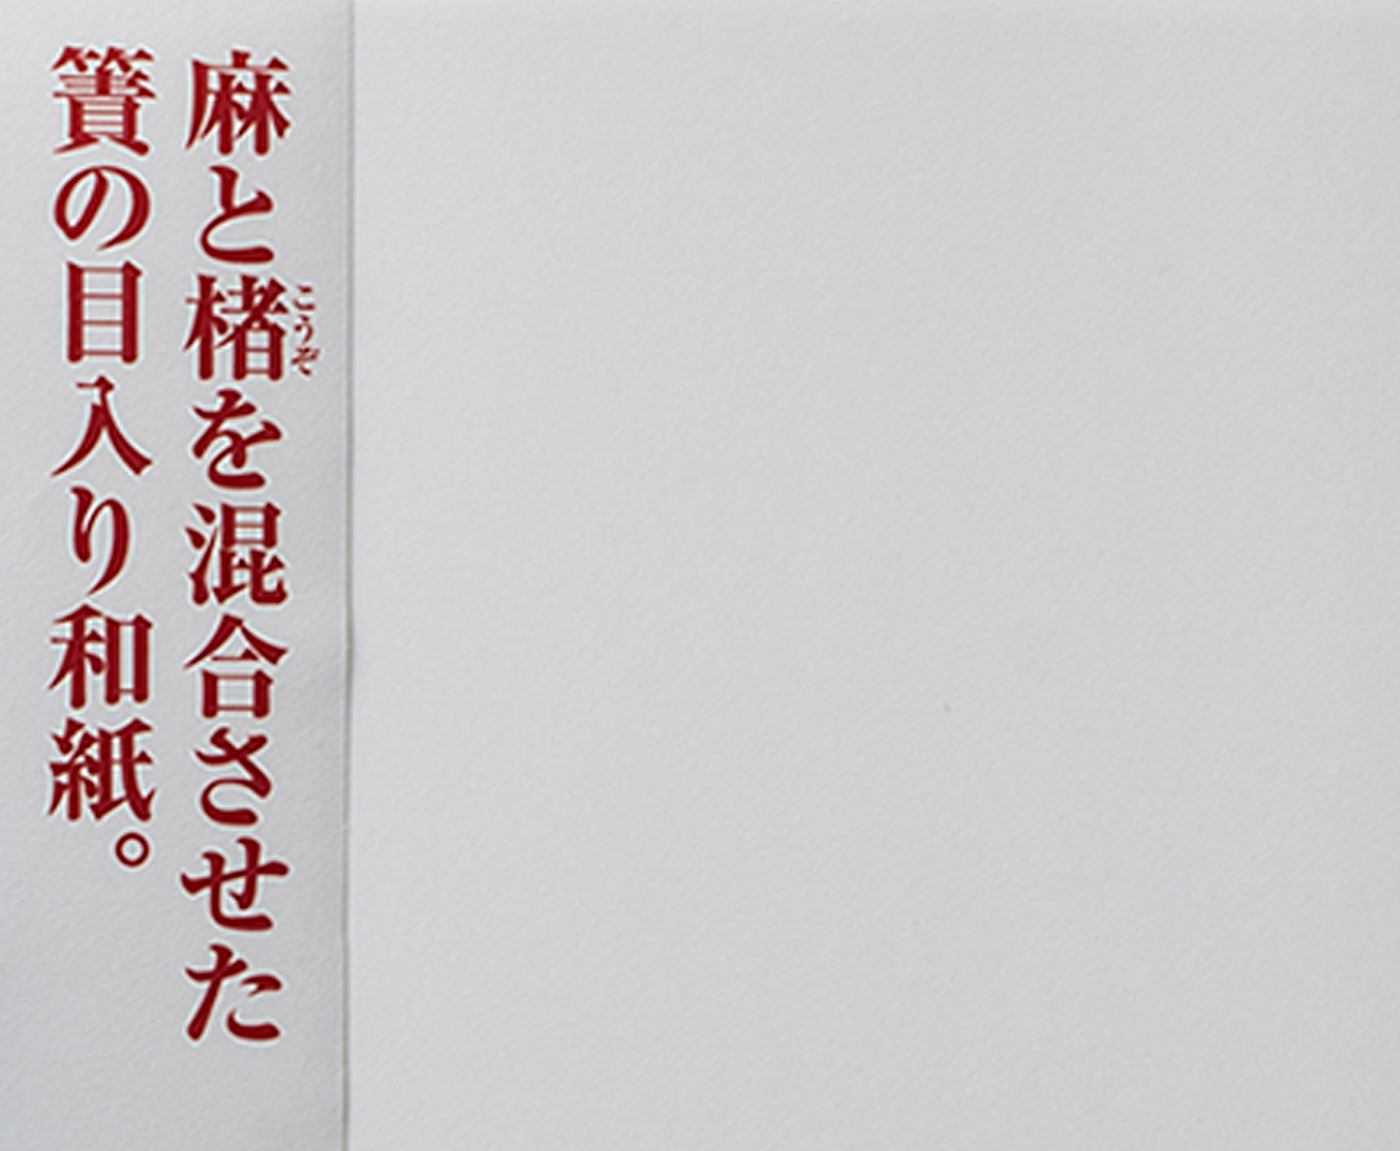 麻と楮を混合させた
こうぞ
簀の目入り和紙。